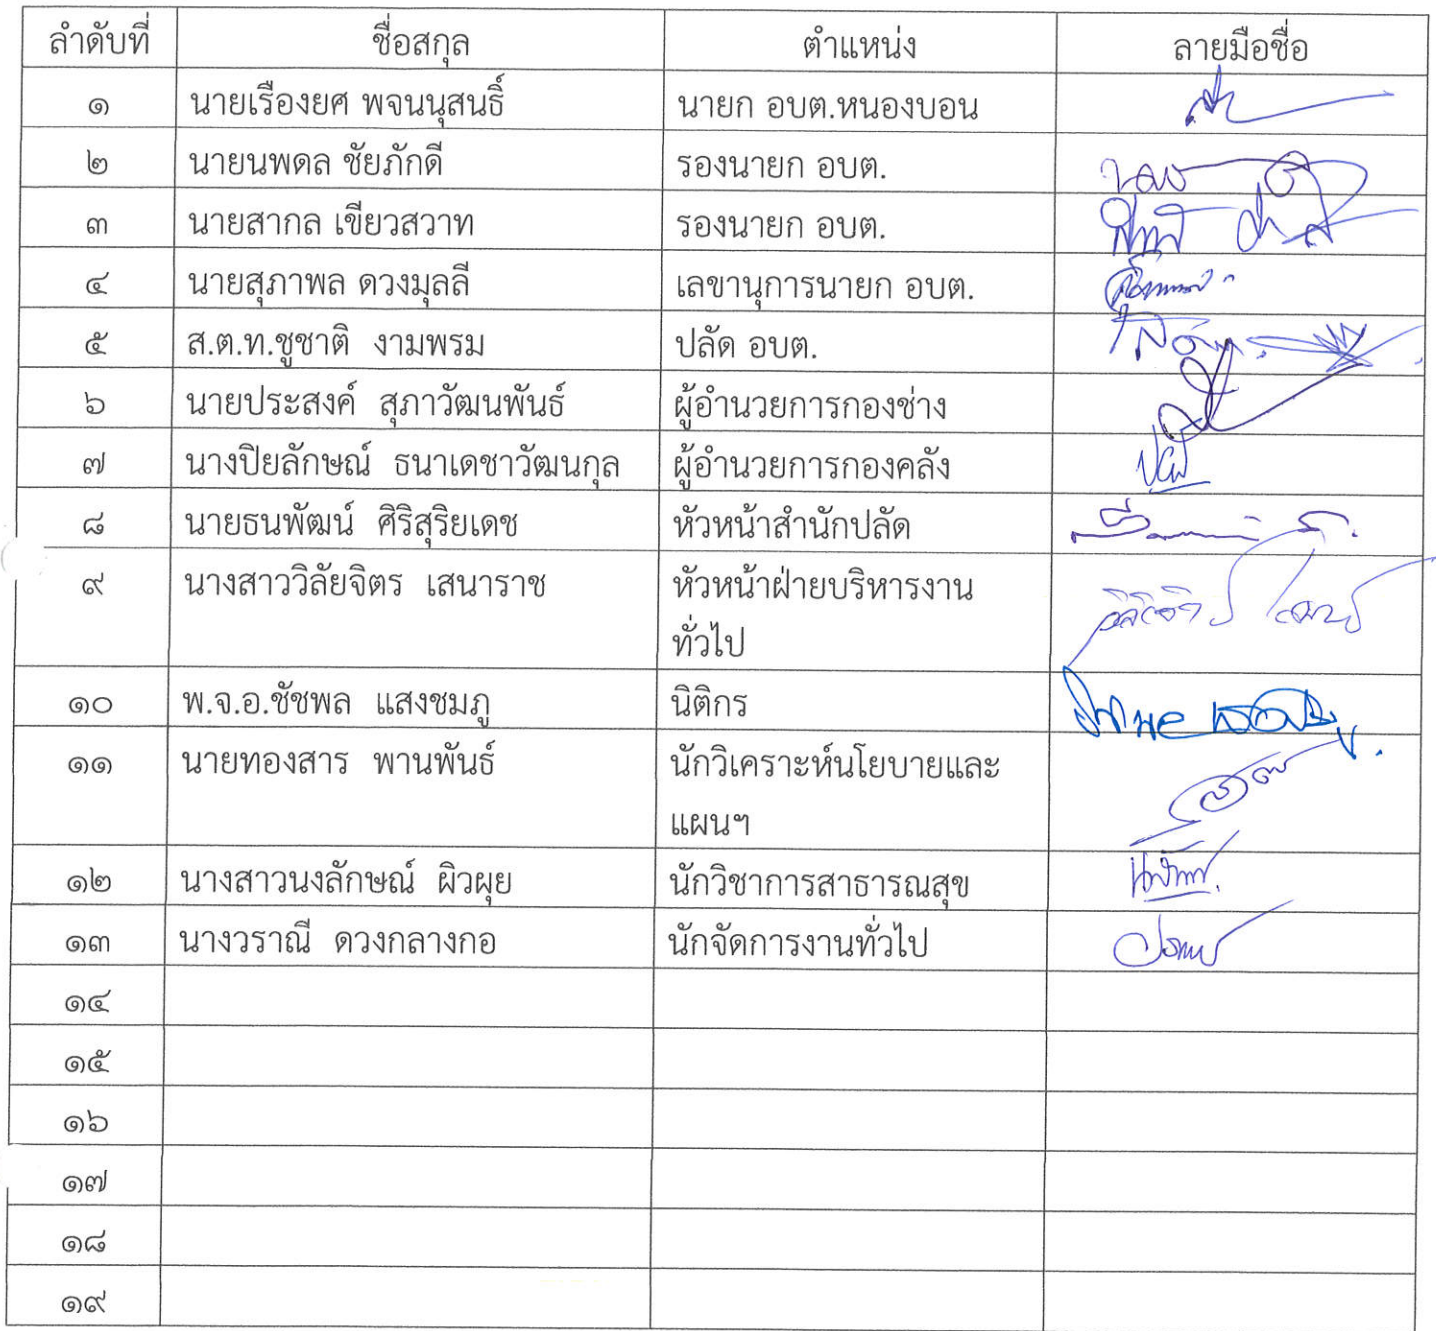 ลำดับที่ ชื่อสกุล ตำแหน่ง ลายมือชื่อ
๑ นายเรืองยศ พจนนุสนธิ์ นายก อบต.หนองบอน
๒ นายนพดล ชัยภักดี รองนายก อบต.
๓ นายสากล เขียวสวาท รองนายก อบต.
๔ นายสุภาพล ดวงมุลลี เลขานุการนายก อบต.
๕ ส.ต.ท.ชูชาติ งามพรม ปลัด อบต.
๖ นายประสงค์ สุภาวัฒนพันธ์ ผู้อำนวยการกองช่าง
๗ นางปิยลักษณ์ ธนาเดชาวัฒนกุล ผู้อำนวยการกองคลัง
๘ นายธนพัฒน์ ศิริสุริยเดช หัวหน้าสำนักปลัด
๙ นางสาววิลัยจิตร เสนาราช หัวหน้าฝ่ายบริหารงาน
ทั่วไป
๑๐ พ.จ.อ.ชัชพล แสงชมภู นิติกร
๑๑ นายทองสาร พานพันธ์ นักวิเคราะห์นโยบายและ
แผนฯ
๑๒ นางสาวนงลักษณ์ ผิวผุย นักวิชาการสาธารณสุข
๑๓ นางวราณี ดวงกลางกอ นักจัดการงานทั่วไป
๑๔
๑๕
๑๖
๑๗
๑๘
๑๙